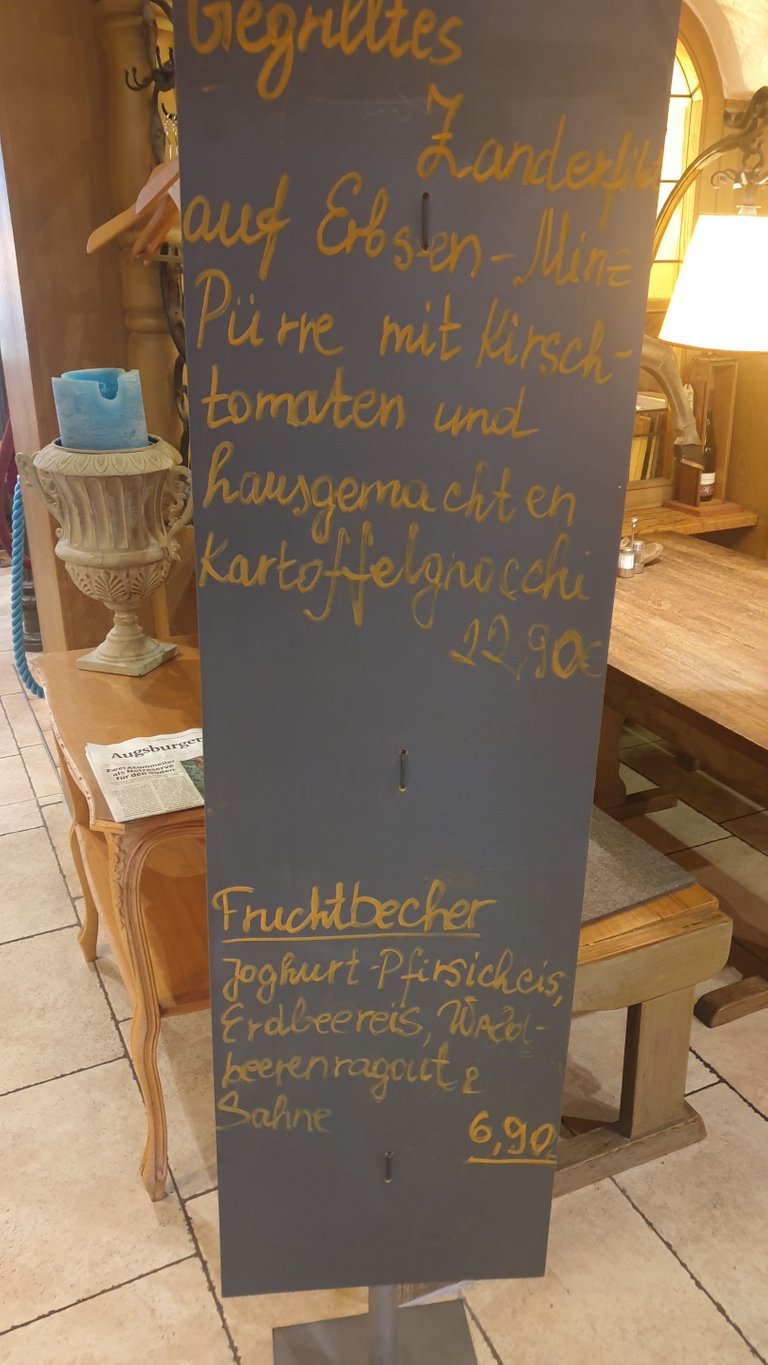 Gegrilltes
Zanderfilet
auf Erbsen-Minz
Pürre mit Kirsch-
tomaten und
hausgemachten
Kartoffelgnocchi
22,90€
Augsburger
Zwei Atommeiler
als Notreserve
für den Süden
Fruchtbecher
Joghurt-Pfirsicheis,
Erdbeereis, Wald-
beerenragout &
Sahne
6,90